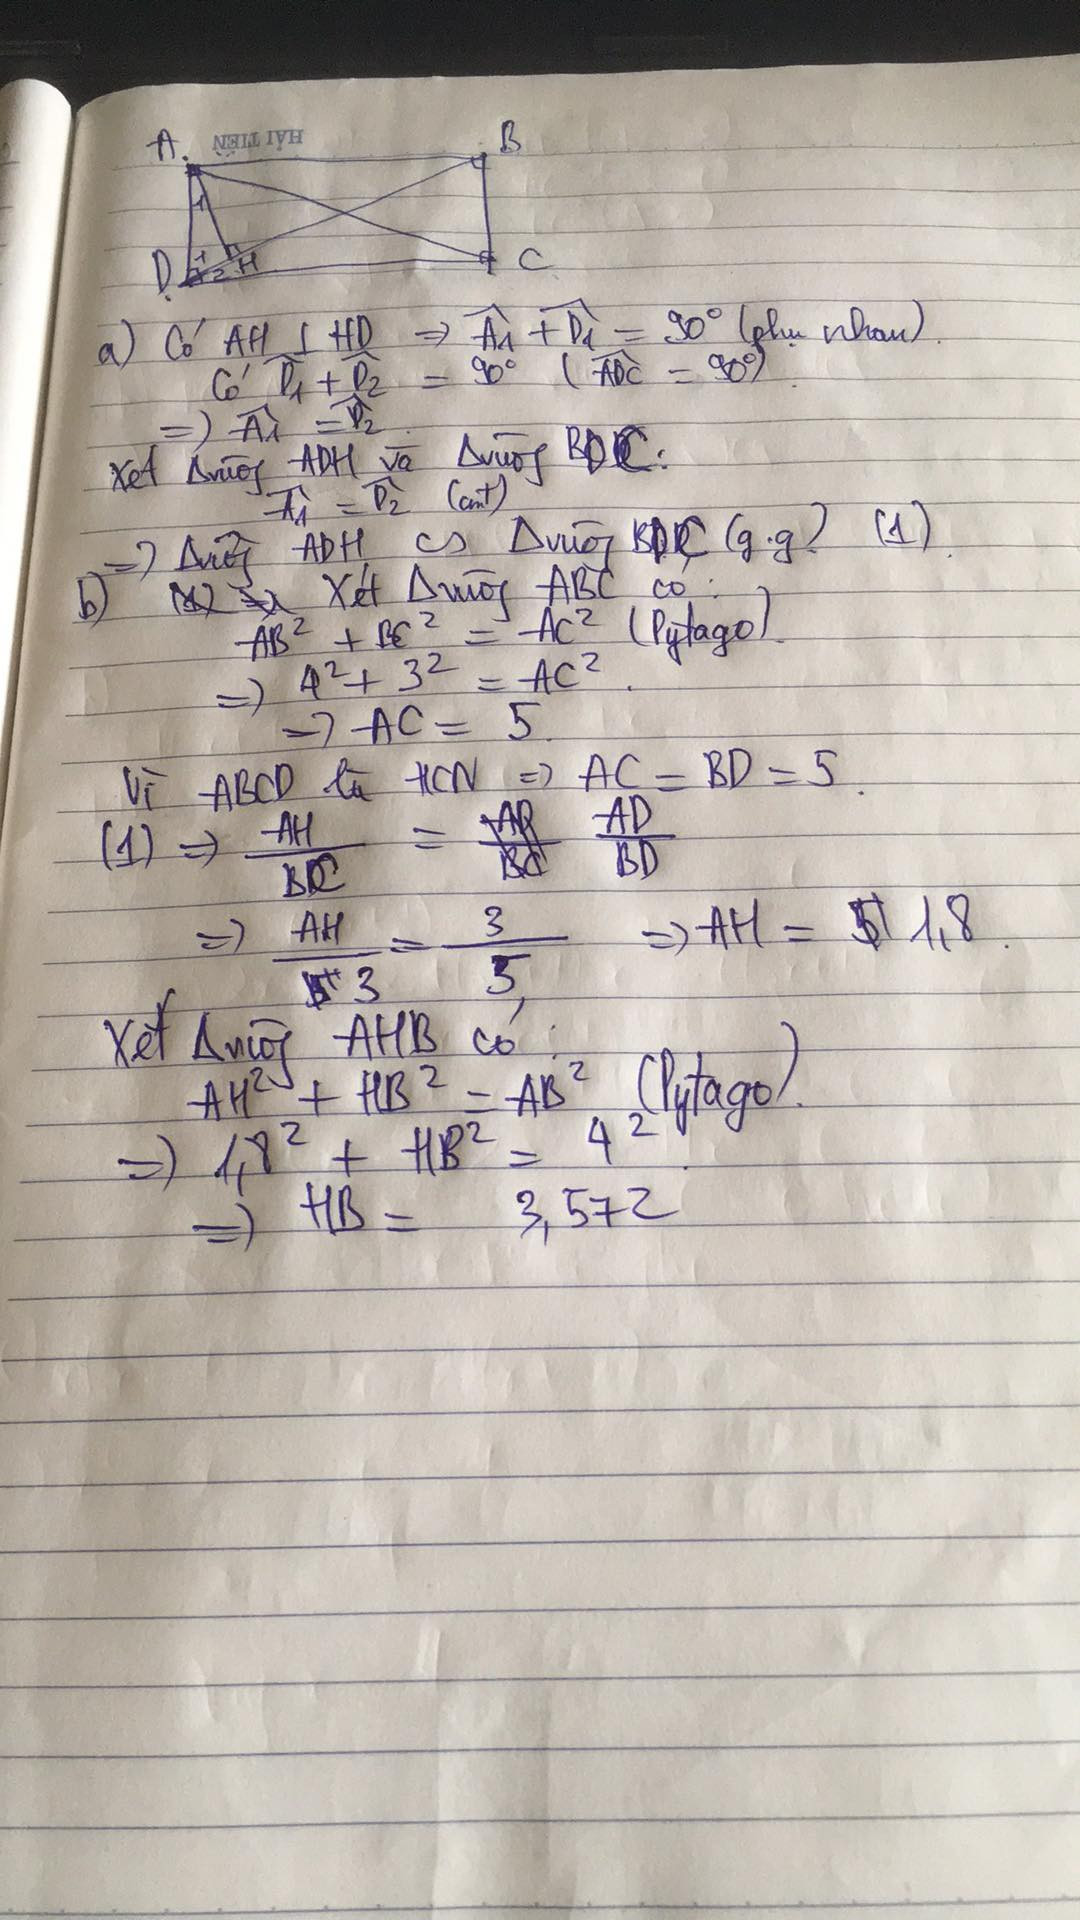 HẢI TIẾN
A B
1
D 1 2 H C
a) Có AH ⊥ HD => Â1 + D̂1 = 90° (phụ nhau).
Có D̂1 + D̂2 = 90° (ADC = 90°)
=> Â1 = D̂2
Xét Δvuông ADH và Δvuông BDC:
Â1 = D̂2 (cmt)
=> Δvuông ADH ∽ Δvuông BDC (g.g) (1)
b) Xét Δvuông ABC có:
AB² + BC² = AC² (Pytago)
=> 4² + 3² = AC².
=> AC = 5.
Vì ABCD là HCN => AC = BD = 5.
(1) => AH/BC = AD/BD
=> AH/3 = 3/5 => AH = 1,8.
Xét Δvuông AHB có:
AH² + HB² = AB² (Pytago).
=> 1,8² + HB² = 4²
=> HB = 3,572